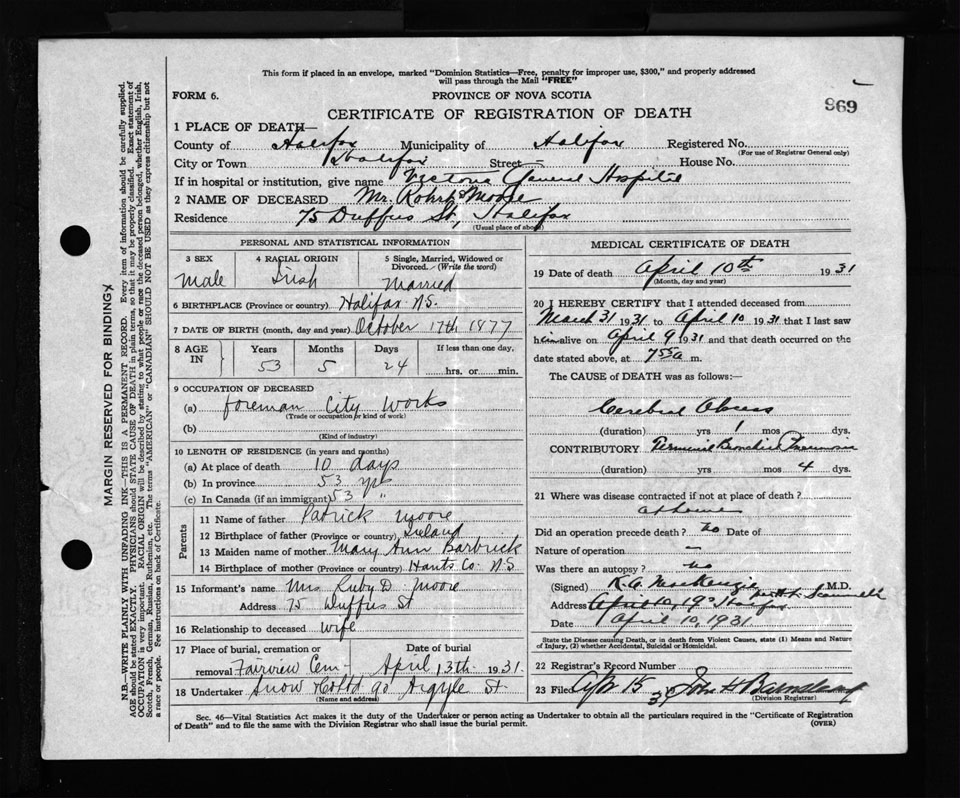 This form if placed in an envelope, marked "Dominion Statistics—Free, penalty for improper use, $300," and properly addressed
will pass through the Mail "FREE"
FORM 6.
PROVINCE OF NOVA SCOTIA
969
CERTIFICATE OF REGISTRATION OF DEATH
1 PLACE OF DEATH—
County of Halifax Municipality of Halifax Registered No.
(For use of Registrar General only)
City or Town Halifax Street - House No.
If in hospital or institution, give name Victoria General Hospital
2 NAME OF DECEASED Mr. Moore
Residence 75 Duffus St, Halifax
(Usual place of abode)
PERSONAL AND STATISTICAL INFORMATION
3 SEX
Male
4 RACIAL ORIGIN
Irish
5 Single, Married, Widowed or
Divorced. (Write the word)
Married
6 BIRTHPLACE (Province or country) Halifax N.S.
7 DATE OF BIRTH (month, day and year) October 17th 1877
8 AGE IN
Years Months Days If less than one day,
53 5 24 hrs. or min.
9 OCCUPATION OF DECEASED
(a) foreman City Works
(Trade or occupation or kind of work)
(b)
(Kind of industry)
10 LENGTH OF RESIDENCE (in years and months)
(a) At place of death 10 days
(b) In province 53 yrs
(c) In Canada (if an immigrant) 53 "
Parents
11 Name of father Patrick Moore
12 Birthplace of father (Province or country) Ireland
13 Maiden name of mother Mary Ann Barbrick
14 Birthplace of mother (Province or country) Hants Co. N.S.
15 Informant's name Mrs Ruby D. Moore
Address 75 Duffus St
16 Relationship to deceased wife
17 Place of burial, cremation or Date of burial
removal Fairview Cem- April 13th 1931
18 Undertaker Snow & Co Ltd 90 Argyle St
(Name and address)
MEDICAL CERTIFICATE OF DEATH
19 Date of death April 10th 1931
(Month, day and year)
20 I HEREBY CERTIFY that I attended deceased from
March 31 1931 to April 10 1931 that I last saw
him alive on April 9 1931 and that death occurred on the
date stated above, at 7 a m.
The CAUSE of DEATH was as follows:
Cerebral Abcess
(duration) yrs 1 mos dys.
CONTRIBUTORY Terminal Bronchial Pneumonia
(duration) yrs mos 4 dys.
21 Where was disease contracted if not at place of death?
at home
Did an operation precede death? no Date of
Nature of operation —
Was there an autopsy? no
(Signed) K.A. MacKenzie M.D.
Address April 10, Halifax
Date April 10, 1931
State the Disease causing Death, or in death from Violent Causes, state (1) Means and Nature
of Injury, (2) whether Accidental, Suicidal or Homicidal.
22 Registrar's Record Number
23 Filed Apr 15 31 John H
(Division Registrar)
Sec. 46—Vital Statistics Act makes it the duty of the Undertaker or person acting as Undertaker to obtain all the particulars required in the "Certificate of Registration
of Death" and to file the same with the Division Registrar who shall issue the burial permit.
(OVER)
MARGIN RESERVED FOR BINDING
N.B.—WRITE PLAINLY WITH UNFADING INK—THIS IS A PERMANENT RECORD. Every item of information should be carefully supplied.
AGE should be stated EXACTLY. PHYSICIANS should STATE CAUSE OF DEATH in plain terms, so that it may be properly classified. Exact statement of
OCCUPATION is very important. RACIAL ORIGIN will be described by stating to what people or race the deceased person belonged, whether English, Irish,
Scotch, French, German, Russian, Ruthenian, etc. The terms "AMERICAN" or "CANADIAN" SHOULD NOT BE USED as they express citizenship but not
a race or people. Fee instructions on back of Certificate.